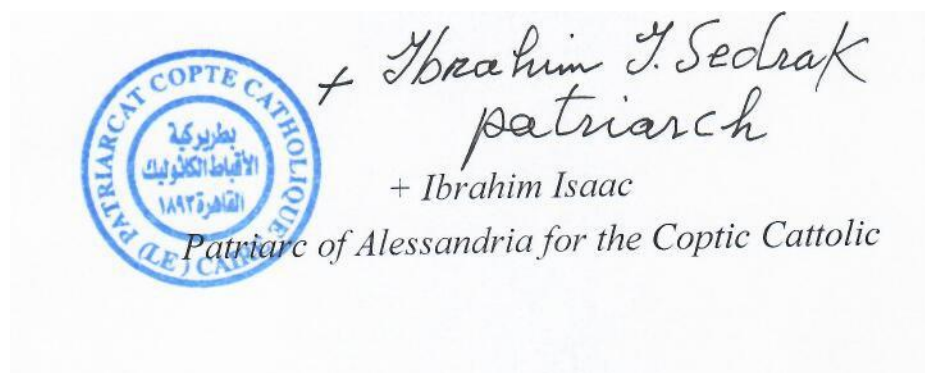 PATRIARCAT COPTE CATHOLIQUE
(LE) CAIRE
بطريركية
الأقباط الكاثوليك
القاهرة ١٨٩٣
+ Ibrahim I. Sedrak
patriarch
+ Ibrahim Isaac
Patriarc of Alessandria for the Coptic Cattolic